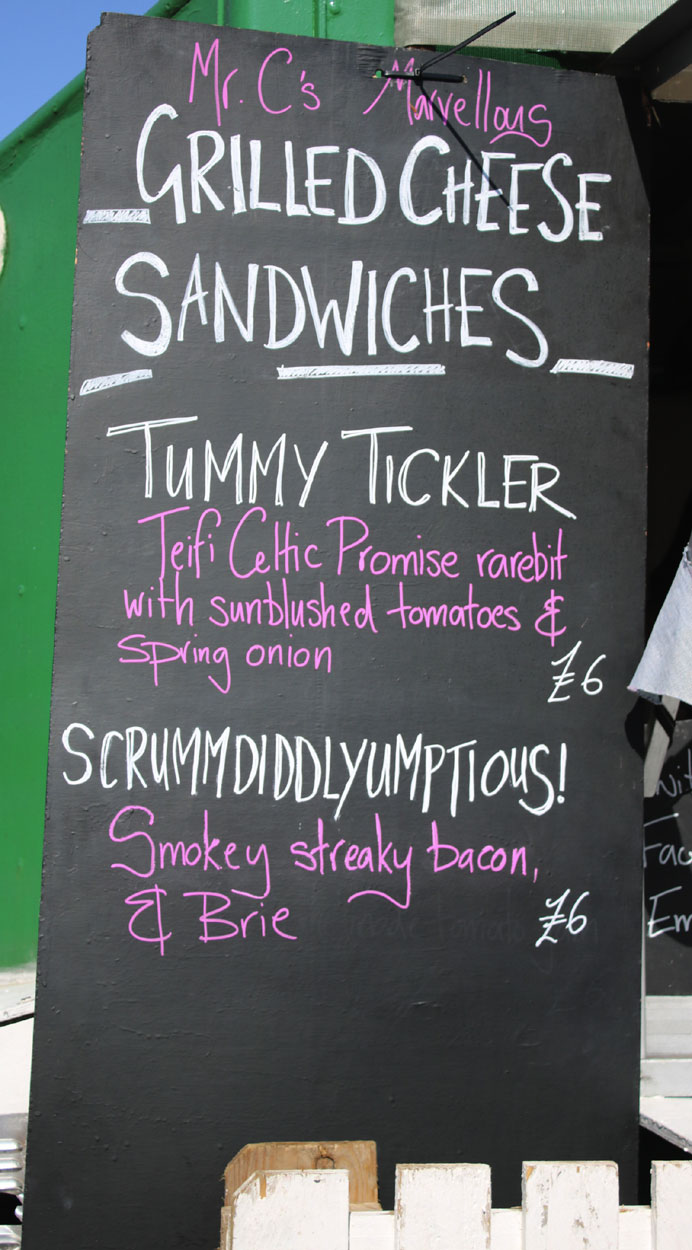 Mr. C's Marvellous
GRILLED CHEESE
SANDWICHES
TUMMY TICKLER
Teifi Celtic Promise rarebit
with sunblushed tomatoes &
spring onion
£6
SCRUMMDIDDLYUMPTIOUS!
Smokey streaky bacon,
& Brie
£6